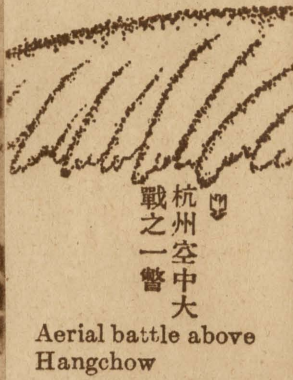 杭州空中大
戰之一瞥
Aerial battle above
Hangchow